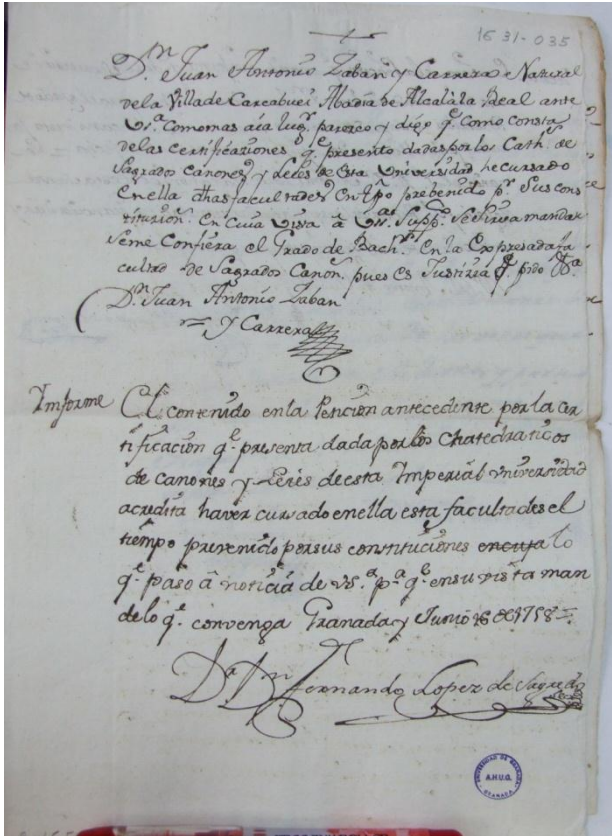 1631-035
Dn. Juan Antonio Zaban y Carrera Natural
de la Villa de Carcabuei Abadia de Alcala la Real ante
Vsa. como mas aia lugr. paresco y digo qe. como consta
de las certificaziones qe. presento dadas por los Cathcos. de
Sagrados Canones y Leies de esta Universidad, he cursado
en ella dhas facultades en tpo prebenido pr. sus cons
titucion. En cuia vista
a Vsa. Suppco. se sirva mandar
se me confiera el Grado de Bachr. en la expresada fa
cultad de Sagrados Canon. pues es Justizia qe. pido
Dn. Juan Antonio Zaban
y Carrera
Ynforme
El contenido en la Peticion antecedente por la cer
tificacion qe. presenta dada por los Chatedraticos
de canones y Leies de esta Imperial vniversidad
acredita haver cursado en ella esta facultades el
tiempo prevenido por sus constituciones en cuya lo
qe. paso a noticia de vs.a pa. qe. en su vista man
de lo qe. convenga Granada y Junio 16 de 1758
Dr. Dn. Fernando Lopez de Sagredo
UNIVERSIDAD DE GRANADA
A.H.U.G.